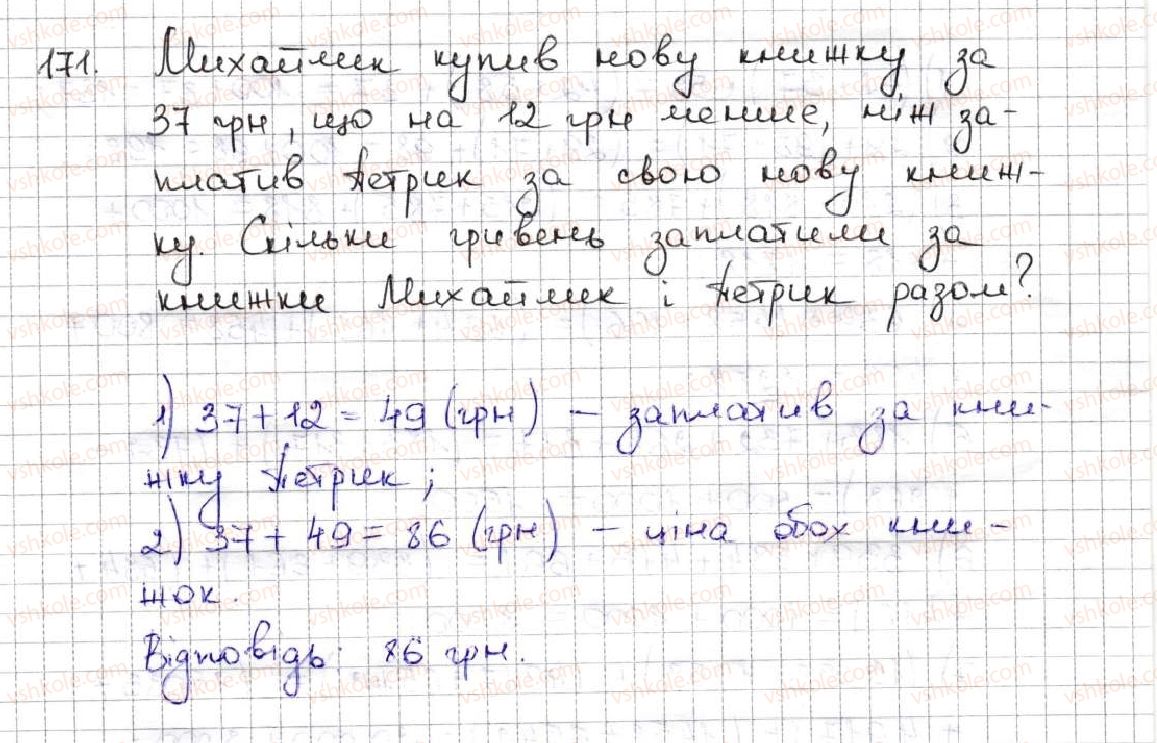 171. Михайлик купив нову книжку за
37 грн, що на 12 грн менше, ніж за-
платив Петрик за свою нову книж-
ку. Скільки гривень заплатили за
книжки Михайлик і Петрик разом?
1) 37 + 12 = 49 (грн) – заплатив за кни-
жку Петрик;
2) 37 + 49 = 86 (грн) – ціна обох кни-
жок.
Відповідь: 86 грн.